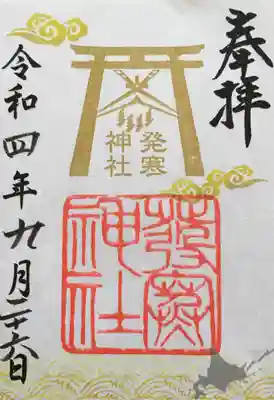 奉拝
発寒
神社
發寒
神社
令和四年九月二十六日